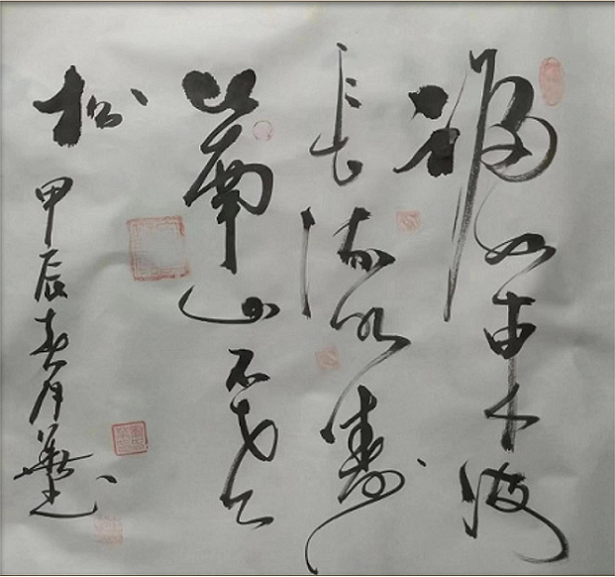 福如東海
長流水壽
比南山不老
松
甲辰春月